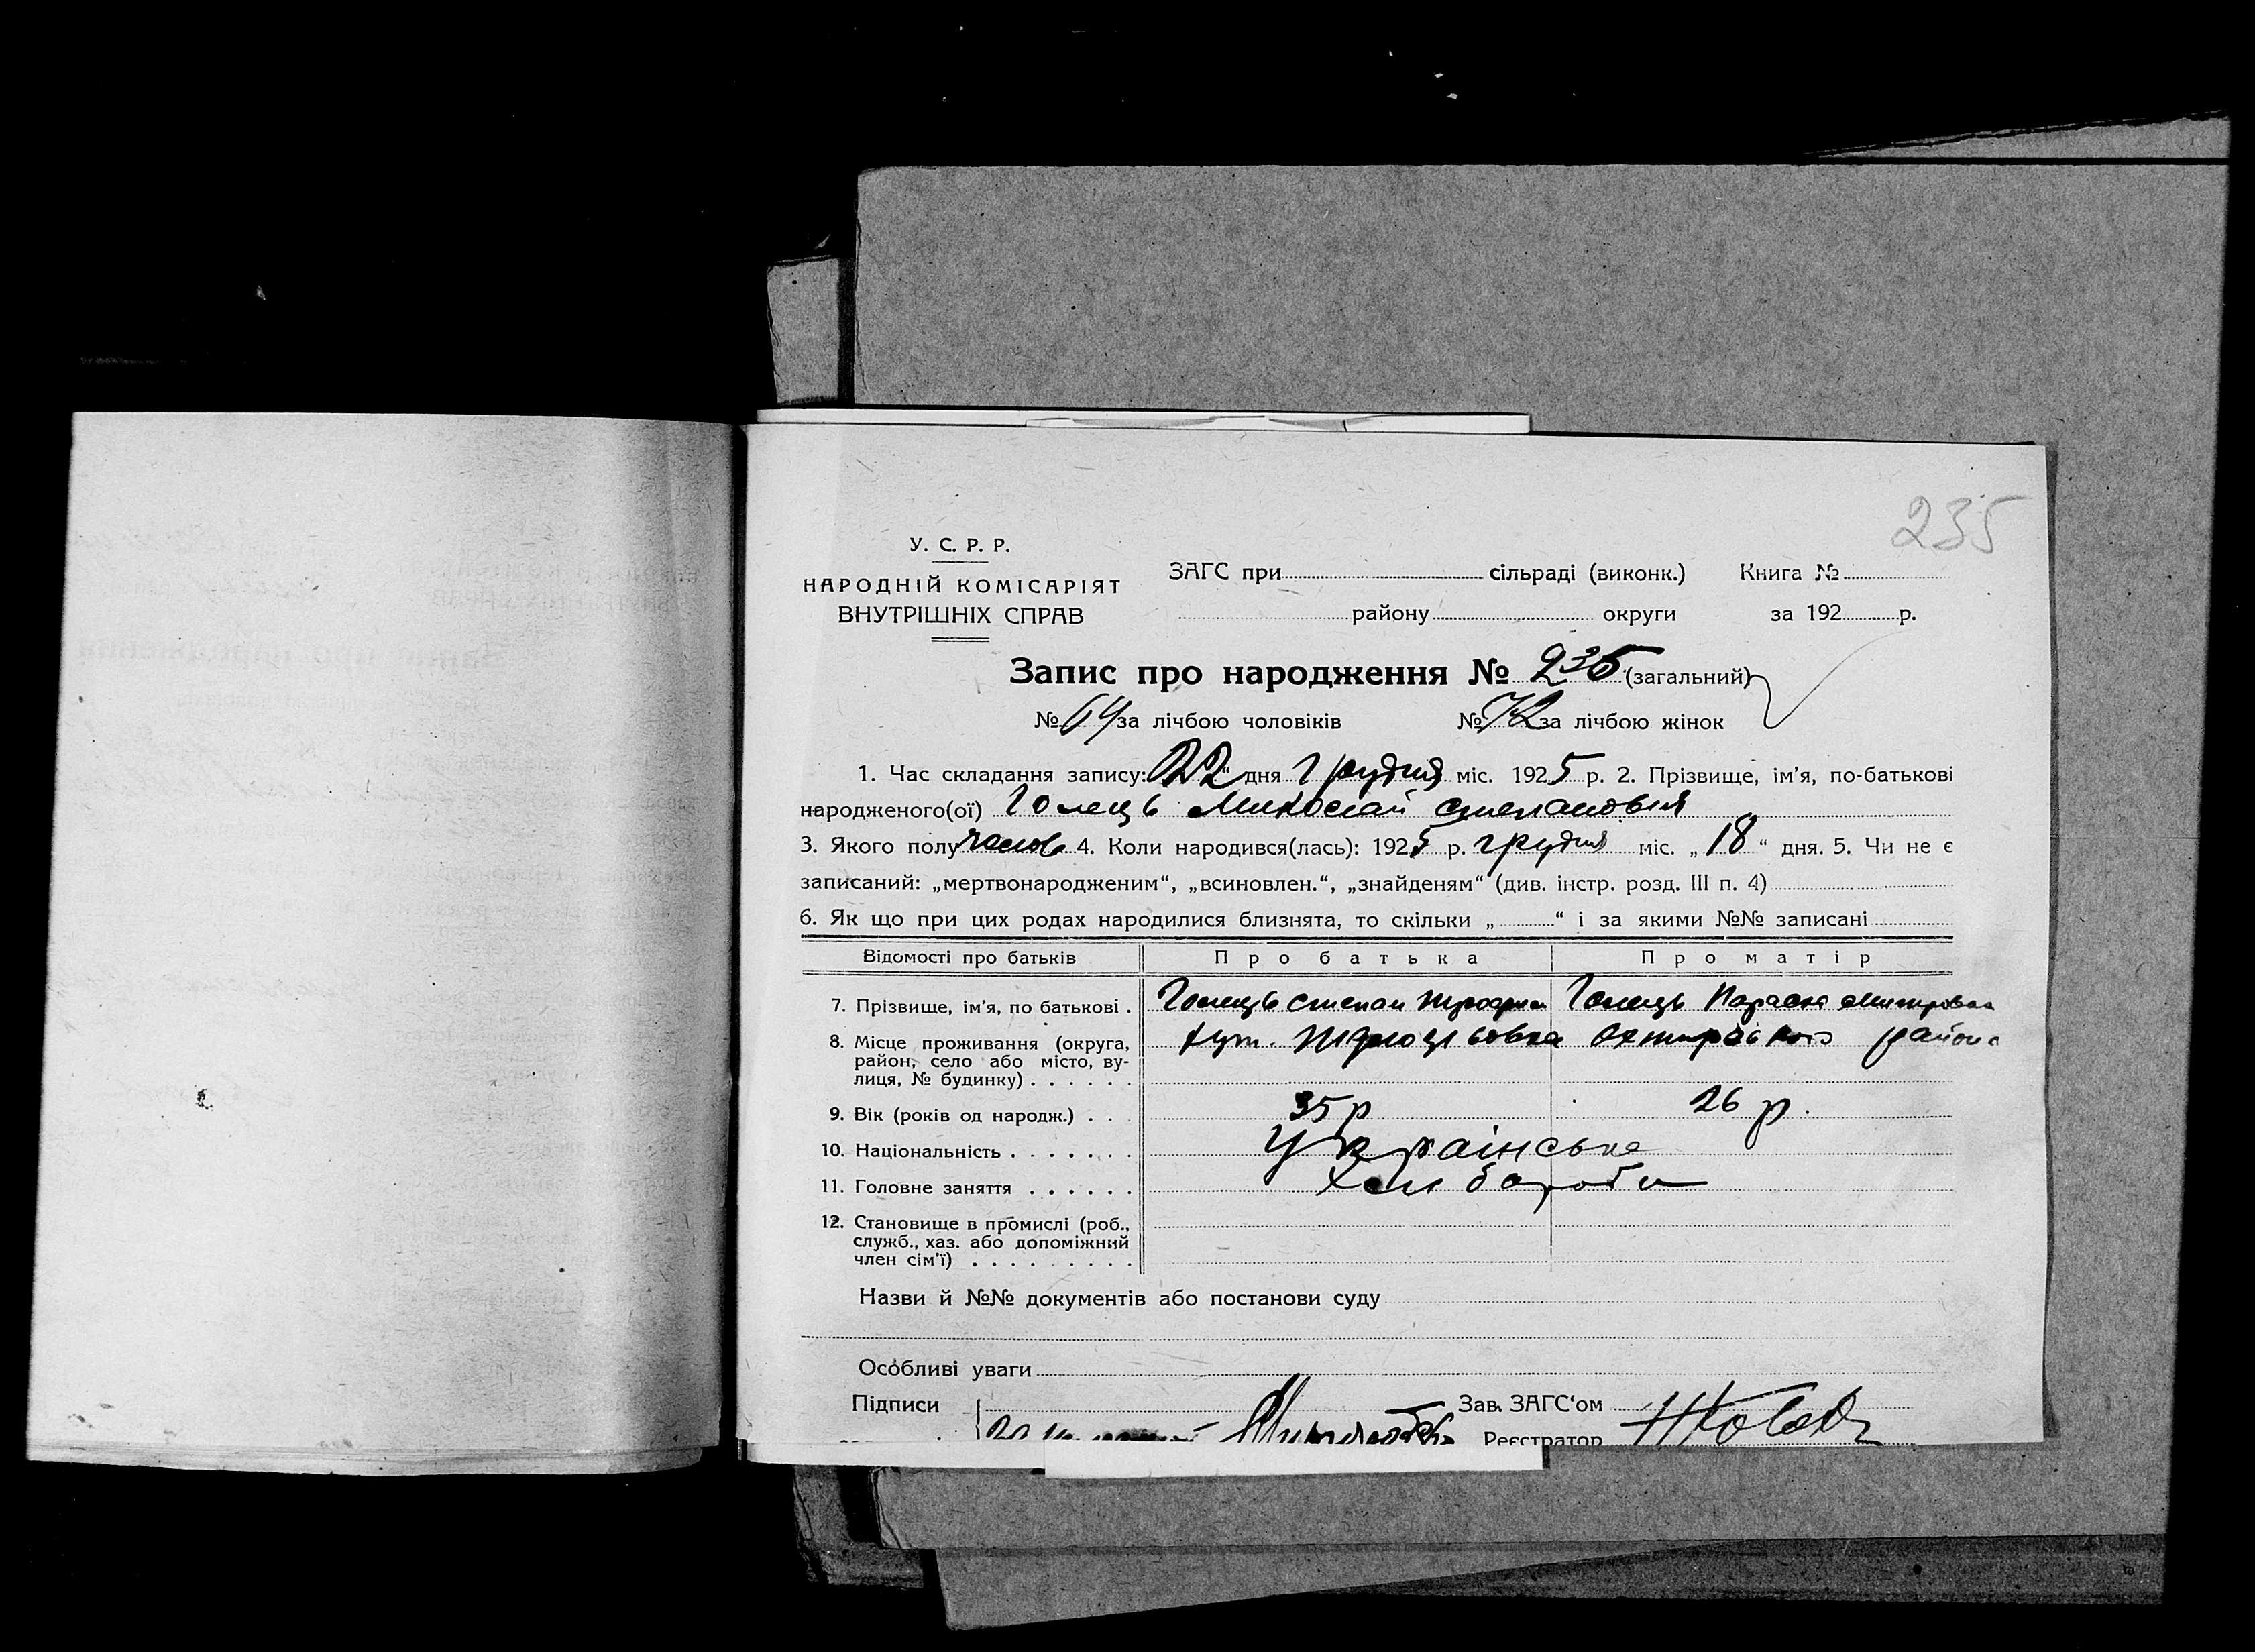 235
У. С. Р. Р.
НАРОДНІЙ КОМІСАРІЯТ
ВНУТРІШНІХ СПРАВ
ЗАГС при сільраді (виконк.) Книга №
району округи за 192 р.
Запис про народження № 235 (загальний)
№ 64 за лічбою чоловіків № 72 за лічбою жінок
1. Час складання запису: 22 " дня грудня міс. 1925 р. 2. Прізвище, ім'я, по-батькові
народженого(ої) Голець Миколай Степанович
3. Якого полу чолов 4. Коли народився(лась): 1925 р. грудня міс. „ 18 " дня. 5. Чи не є
записаний: „мертвонародженим", „всиновлен.", „знайденям" (див. інстр. розд. III п. 4)
6. Як що при цих родах народилися близнята, то скільки „ " і за якими №№ записані
Відомості про батьків Про батька Про матір
7. Прізвище, ім'я, по батькові . Голець Степан Голець Параска
8. Місце проживання (округа, хут. Охтирського района
район, село або місто, ву-
лиця, № будинку) . . . . . .
9. Вік (років од народж.) . . . 35 р 26 р.
10. Національність . . . . . . . Українська
11. Головне заняття . . . . . . Хліборобы
12. Становище в промислі (роб.,
служб., хаз. або допоміжний
член сім'ї) . . . . . . . . .
Назви й №№ документів або постанови суду
Особливі уваги
Підписи Зав. ЗАГС'ом
Реєстратор